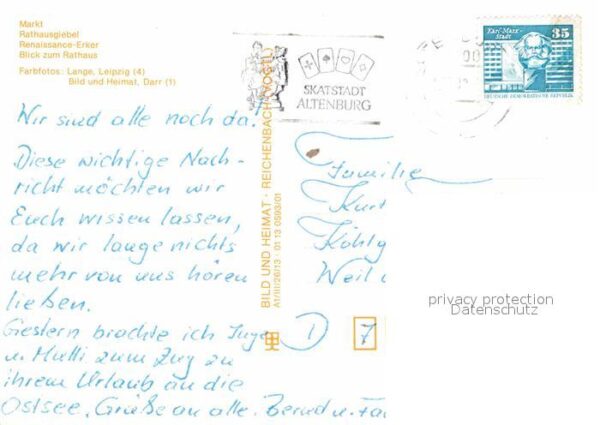 Markt
Rathausgiebel
Renaissance-Erker
Blick zum Rathaus
Farbfotos: Lange, Leipzig (4)
Bild und Heimat, Darr (1)
SKATSTADT
ALTENBURG
90
Karl-Marx-Stadt
35
DEUTSCHE DEMOKRATISCHE REPUBLIK
BILD UND HEIMAT · REICHENBACH (VOGTL)
A1/III/26/13 · 01 13 0593/01
Wir sind alle noch da.
Diese wichtige Nach-
richt möchten wir
Euch wissen lassen,
da wir lange nichts
mehr von uns hören
ließen.
Gestern brachte ich Inge
u. Mutti zum Zug zu
ihrem Urlaub an die
Ostsee. Grüße an alle. Bernd u. Fam
Familie
Kurt
Köhl
Weil
D 7
privacy protection
Datenschutz